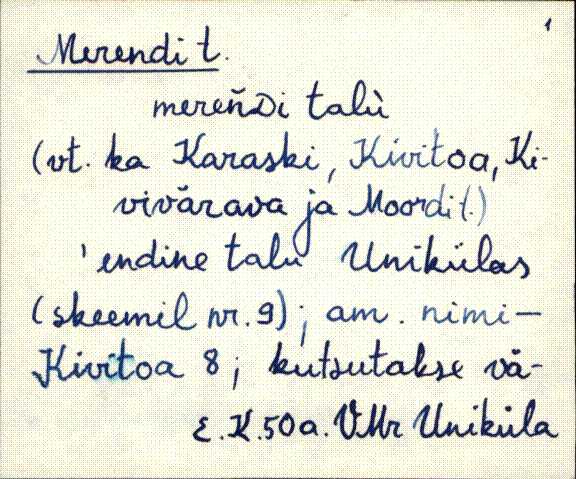 1
Merendi t.
mereňDi talù
(vt. ka Karaski, Kivitoa, Ki-
vivärava ja Moordi t.)
'endine talu Unikülas
(skeemil nr. 9); am. nimi –
Kivitoa 8; kutsutakse vä-
E.K. 50 a. VMr Uniküla